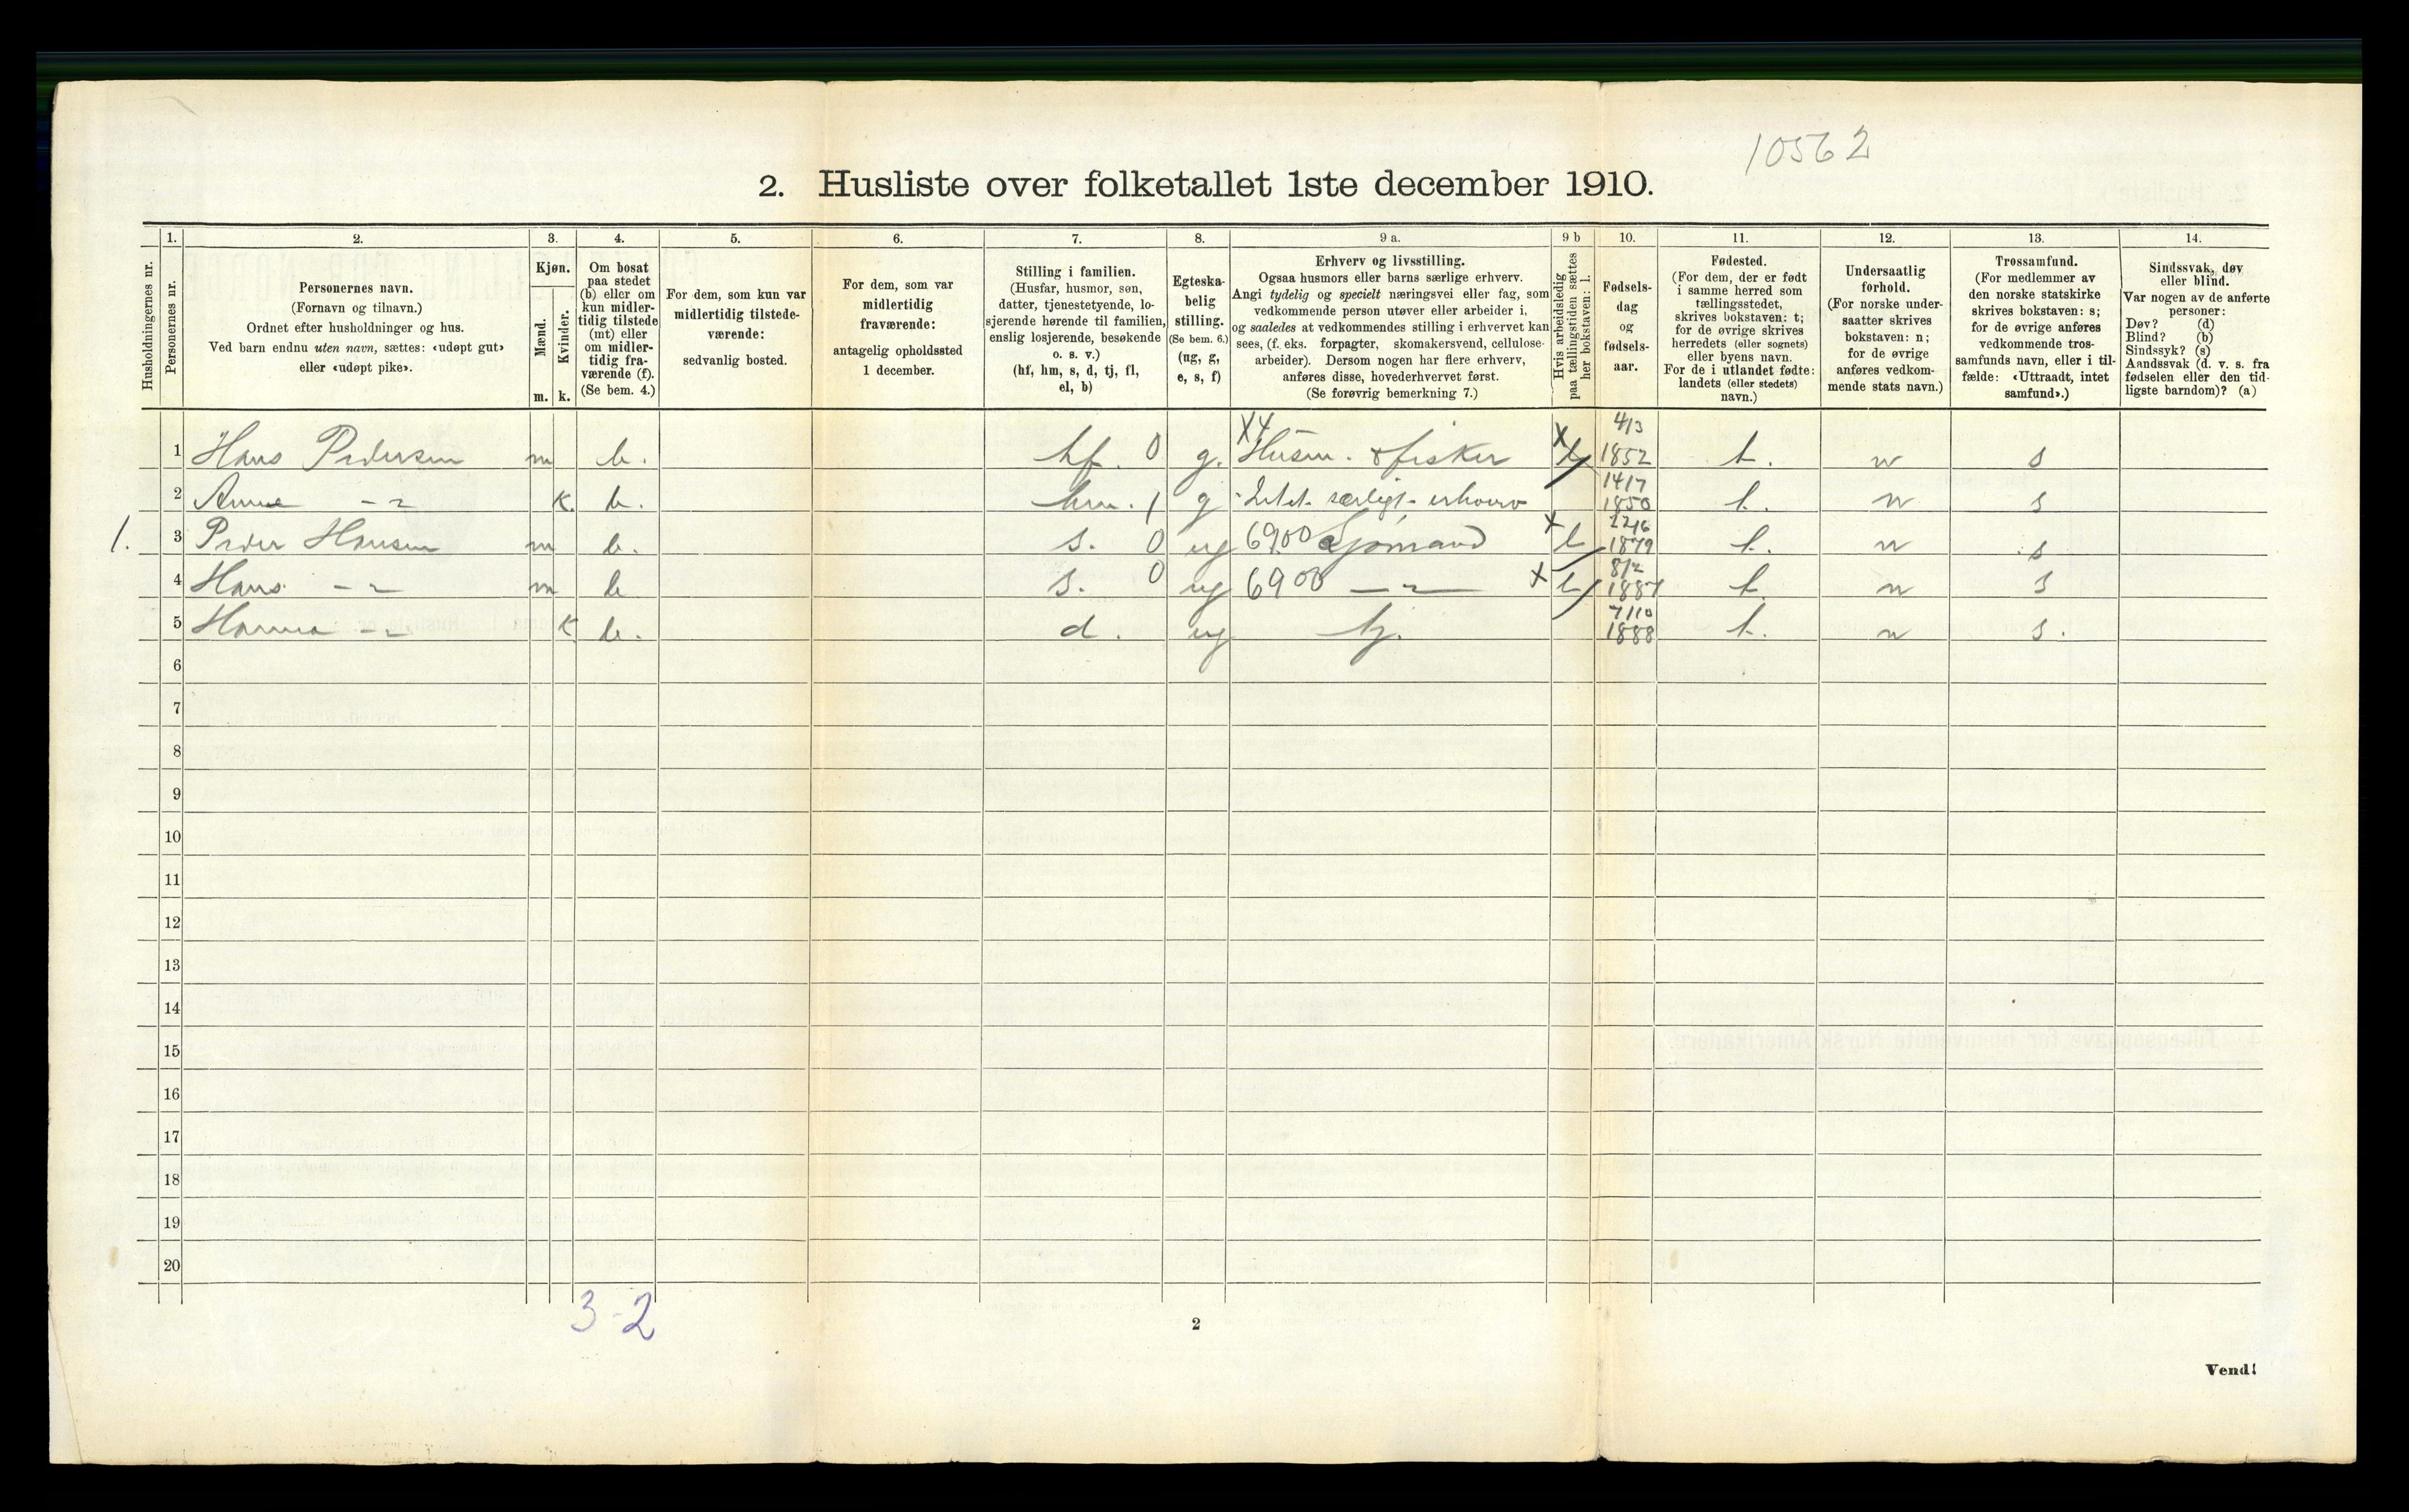 10562
2. Husliste over folketallet 1ste december 1910.
Husholdningernes nr.
1.
Personernes nr.
2.
Personernes navn.
(Fornavn og tilnavn.)
Ordnet efter husholdninger og hus.
Ved barn endnu uten navn, sættes: «udøpt gut»
eller «udøpt pike».
3.
Kjøn.
Mænd.
Kvinder.
m. k.
4.
Om bosat
paa stedet
(b) eller om
kun midler-
tidig tilstede
(mt) eller
om midler-
tidig fra-
værende (f).
(Se bem. 4.)
5.
For dem, som kun var
midlertidig tilstede-
værende:
sedvanlig bosted.
6.
For dem, som var
midlertidig
fraværende:
antagelig opholdssted
1 december.
7.
Stilling i familien.
(Husfar, husmor, søn,
datter, tjenestetyende, lo-
sjerende hørende til familien,
enslig losjerende, besøkende
o. s. v.)
(hf, hm, s, d, tj, fl,
el, b)
8.
Egteska-
belig
stilling.
(Se bem. 6.)
(ug, g,
e, s, f)
9 a.
Erhverv og livsstilling.
Ogsaa husmors eller barns særlige erhverv.
Angi tydelig og specielt næringsvei eller fag, som
vedkommende person utøver eller arbeider i,
og saaledes at vedkommendes stilling i erhvervet kan
sees, (f. eks. forpagter, skomakersvend, cellulose-
arbeider). Dersom nogen har flere erhverv,
anføres disse, hovederhvervet først.
(Se forøvrig bemerkning 7.)
9 b
Hvis arbeidsledig
paa tællingstiden sættes
her bokstaven: l.
10.
Fødsels-
dag
og
fødsels-
aar.
11.
Fødested.
(For dem, der er født
i samme herred som
tællingsstedet,
skrives bokstaven: t;
for de øvrige skrives
herredets (eller sognets)
eller byens navn.
For de i utlandet fødte:
landets (eller stedets)
navn.)
12.
Undersaatlig
forhold.
(For norske under-
saatter skrives
bokstaven: n;
for de øvrige
anføres vedkom-
mende stats navn.)
13.
Trossamfund.
(For medlemmer av
den norske statskirke
skrives bokstaven: s;
for de øvrige anføres
vedkommende tros-
samfunds navn, eller i til-
fælde: «Uttraadt, intet
samfund».)
14.
Sindssvak, døv
eller blind.
Var nogen av de anførte
personer:
Døv? (d)
Blind? (b)
Sindssyk? (s)
Aandssvak (d. v. s. fra
fødselen eller den tid-
ligste barndom)? (a)
1 Hans Pedersen m b. hf. 0 g. X4 Husm. & fisker X l 4/3 1852 t. n s
2 Anna -"- k. b. hm. 1 g Intet særligt erhverv 14/7 1850 t. n s
1. 3 Peder Hansen m b. s. 0 ug 6900 Sjømand X l 22/6 1879 t. n s
4 Hans -"- m b s. 0 ug 6900 -"- X l 8/2 1887 t. n s
5 Hanna -"- k b. d. ug tj. 7/10 1888 t. n s.
6
7
8
9
10
11
12
13
14
15
16
17
18
19
20
3-2
2
Vend!